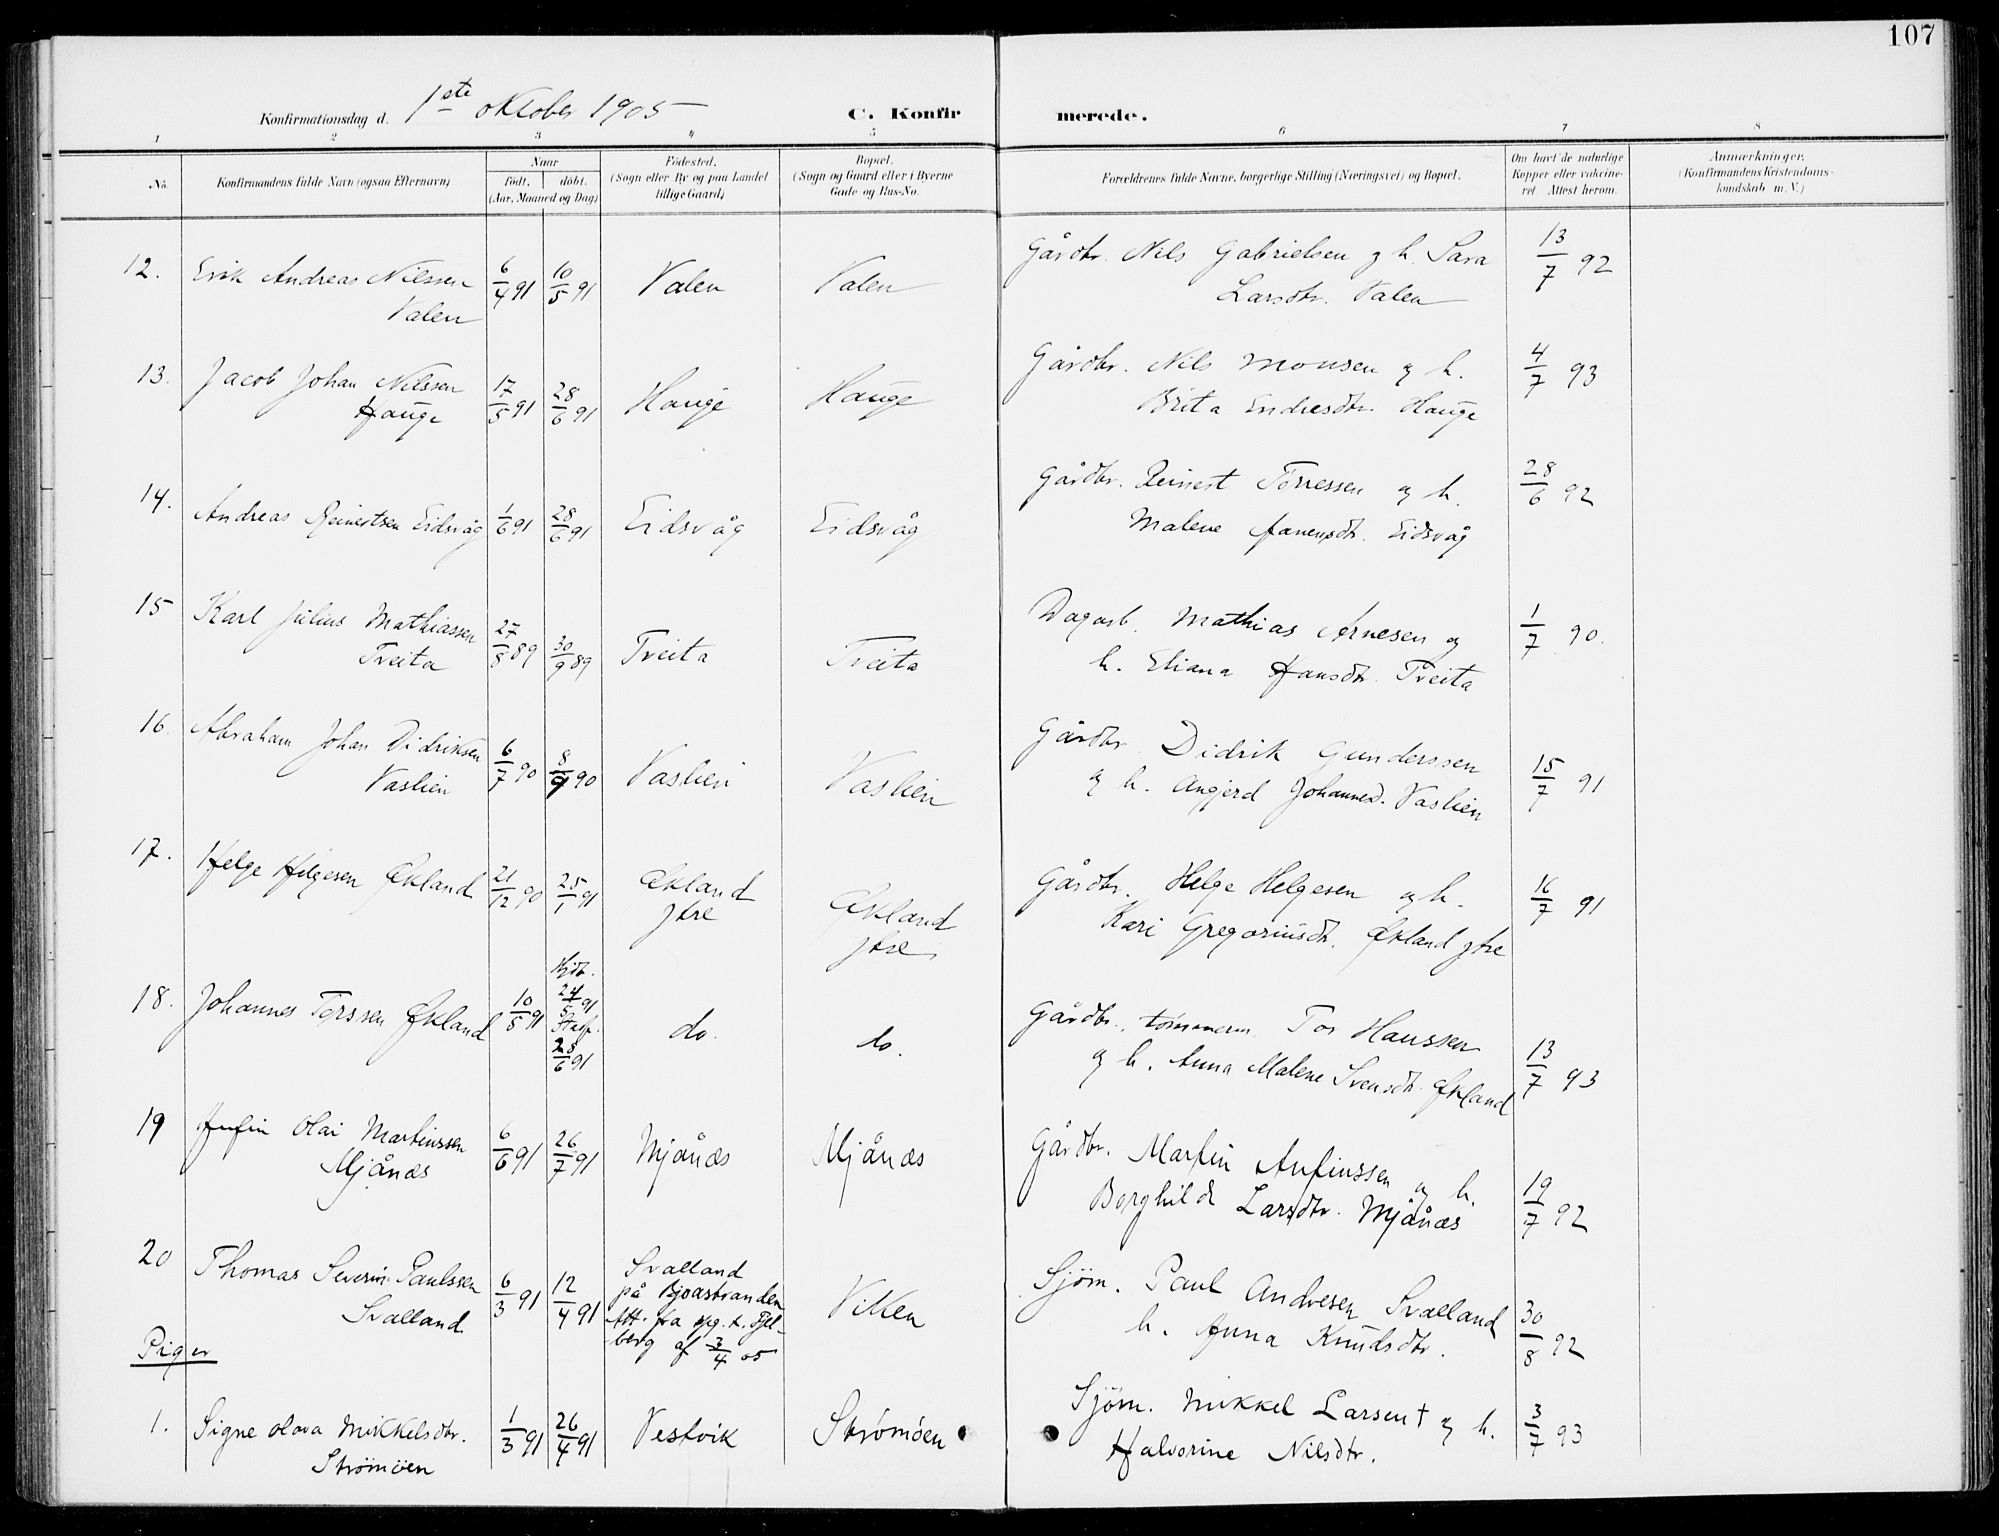 107
Konfirmationsdag d. 1ste oktober 1905
C. Konfirmerede.
1 2 3 4 5 6 7 8
No.
Konfirmandens fulde Navn (ogsaa Efternavn)
Naar
født. døbt.
(Aar, Maaned og Dag)
Fødested.
(Sogn eller By og paa Landet
tillige Gaard)
Bopæl.
(Sogn og Gaard eller i Byerne
Gade og Hus-No.
Forældrenes fulde Navne, borgerlige Stilling (Næringsvei) og Bopæl.
Om havt de naturlige
Kopper eller vakcine-
ret. Attest herom.
Anmærkninger.
(Konfirmandens Kristendoms-
kundskab m. V.)
12. Erik Andreas Nilssen 6/4 91 10/5 91 Valen Valen Gårdbr. Nils Gabrielsen og h. Sara 13/7 92
Valen Larsdtr. Valen
13. Jacob Johan Nilssen 17/5 91 28/6 91 Hauge Hauge Gårdbr. Nils Monsen og h. 4/7 93
Hauge Brita Endresdtr. Hauge
14. Andreas Reinertsen Eidsvåg 1/6 91 28/6 91 Eidsvåg Eidsvåg Gårdbr. Reinert Tørressen og h. 28/6 92
Malene Aanensdtr. Eidsvåg
15 Karl Julius Mathiassen 27/8 89 30/9 89 Tveita Tveita Dagarb. Mathias Arnesen og 1/7 90.
Tveita h. Eliana Hansdtr. Tveita
16. Abraham Johan Didriksen 6/7 90 8/9 90 Vaslien Vaslien Gårdbr. Didrik Gunderssen 15/7 91
Vaslien og h. Angjerd Johannesd. Vaslien
17. Helge Helgesen Økland 21/12 90 25/1 91 Økland Økland Gårdbr. Helge Helgesen og h. 16/7 91
ytre ytre Kari Gregoriusdtr. Økland ytre
18. Johannes Torssen Økland 10/5 91 Hjdb. 24/5 91 Stadf. 28/6 91 do. do. Gårdbr., tømmerm. Tor Hanssen 13/7 93
og h. Anna Malene Svensdtr. Økland
19 Anfin Olai Martinssen 6/6 91 26/7 91 Mjånæs Mjånæs Gårdbr. Martin Anfinssen og h. 19/7 92
Mjånæs Borghilde Larsdtr. Mjånæs
20 Thomas Severin Paulssen 6/3 91 12/4 91 Svalland Vikken Sjøm. Paul Andresen Svalland 30/8 92
Svalland på Bjoastranden h. Anna Knudsdtr.
Att. fra spg. t. Fjel-
berg af 3/4 05
Piger
1. Signe Olava Mikkelsdtr. 1/3 91 26/4 91 Vestvik Strømøen Sjøm. Mikkel Larsen † og h. 3/7 93
Strømøen Halvorine Nilsdtr.